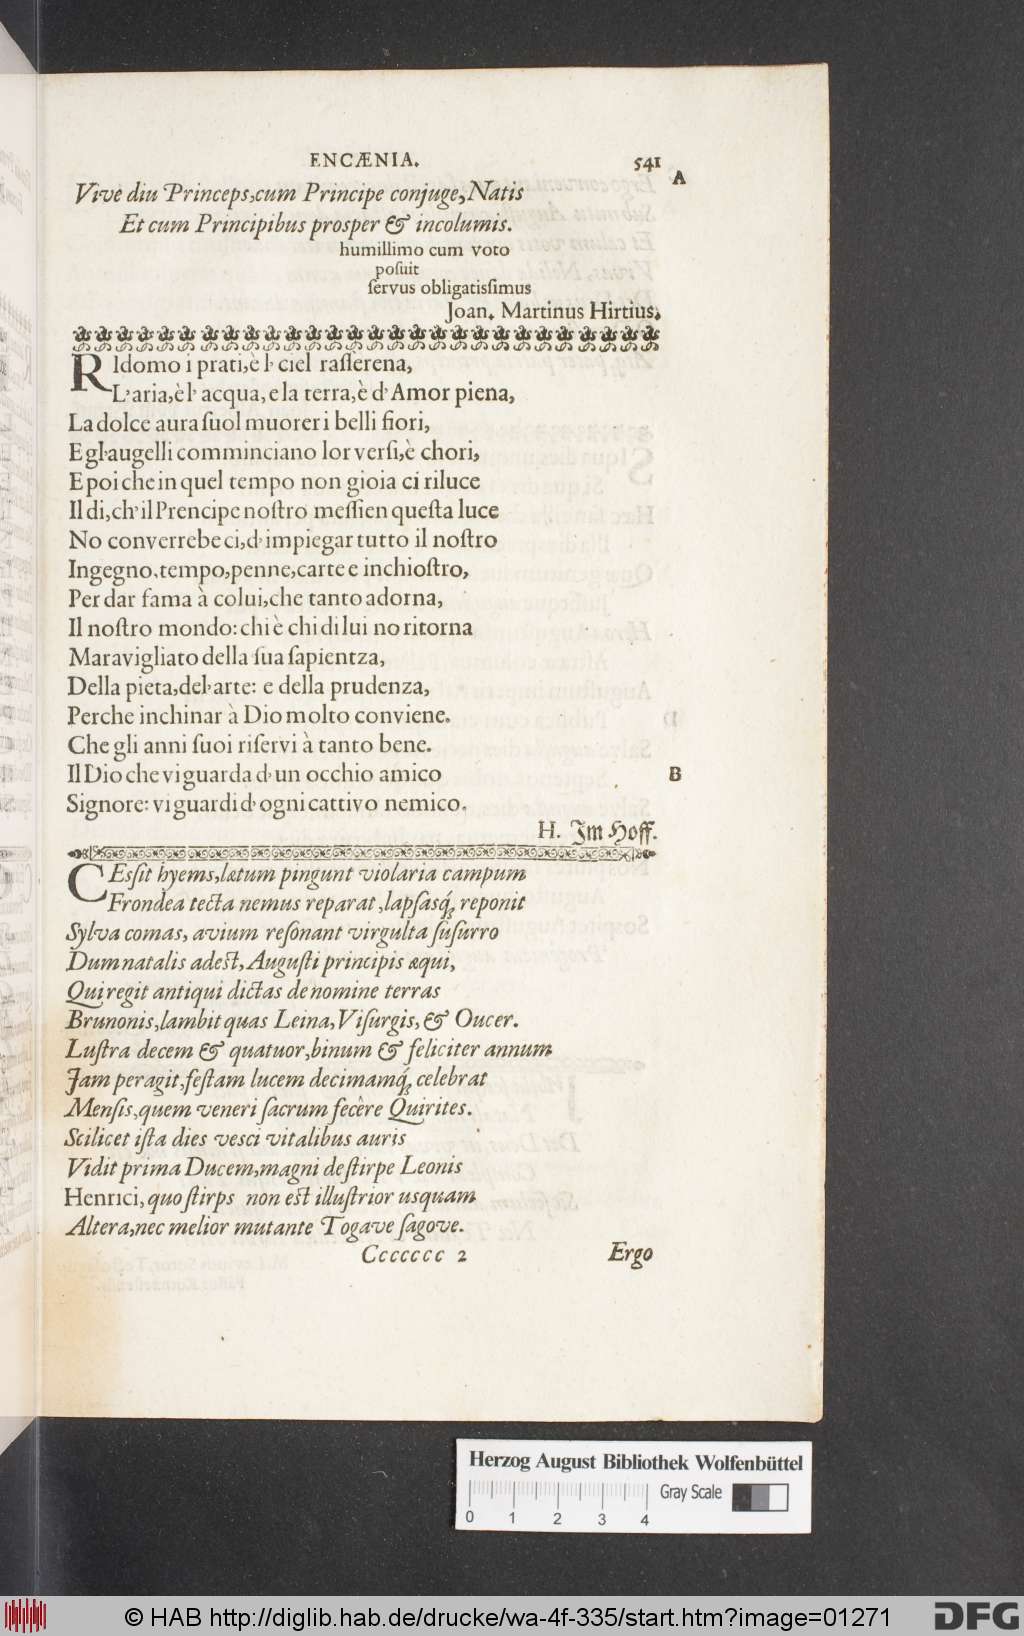 ENCÆNIA. 541
A
Vive diu Princeps, cum Principe conjuge, Natis
Et cum Principibus prosper & incolumis.
humillimo cum voto
poſuit
ſervus obligatiſſimus
Joan. Martinus Hirtius.
RIdomo i prati, è l' ciel raſſèrena,
L'aria, è l' acqua, e la terra, è d' Amor piena,
La dolce aura ſuol muorer i belli fiori,
E gl'augelli comminciano lor verſi, è chori,
E poi che in quel tempo non gioia ci riluce
Il di, ch' il Prencipe noſtro meſſi en queſta luce
No converrebe ci, d' impiegar tutto il noſtro
Ingegno, tempo, penne, carte e inchioſtro,
Per dar fama à colui, che tanto adorna,
Il noſtro mondo: chi è chi di lui no ritorna
Maravigliato della ſua ſapientza,
Della pieta, del' arte: e della prudenza,
Perche inchinar à Dio molto conviene.
Che gli anni ſuoi riſervi à tanto bene.
Il Dio che vi guarda d' un occhio amico
B
Signore: vi guardi d' ogni cattivo nemico.
H. Im Hoff.
CEſſit hyems, lætum pingunt violaria campum
Frondea tecta nemus reparat, lapſasq́; reponit
Sylva comas, avium reſonant virgulta ſuſurro
Dum natalis adeſt, Auguſti principis æqui,
Qui regit antiqui dictas de nomine terras
Brunonis, lambit quas Leina, Viſurgis, & Oucer.
Luſtra decem & quatuor, binum & feliciter annum
Jam peragit, feſtam lucem decimamq́; celebrat
Menſis, quem veneri ſacrum fecêre Quirites.
Scilicet iſta dies veſci vitalibus auris
Vidit prima Ducem, magni de ſtirpe Leonis
Henrici, quo ſtirps non eſt illuſtrior usquam
Altera, nec melior mutante Togave ſagove.
Ccccccc 2 Ergo
Herzog August Bibliothek Wolfenbüttel
Gray Scale
0 1 2 3 4
© HAB http://diglib.hab.de/drucke/wa-4f-335/start.htm?image=01271
DFG